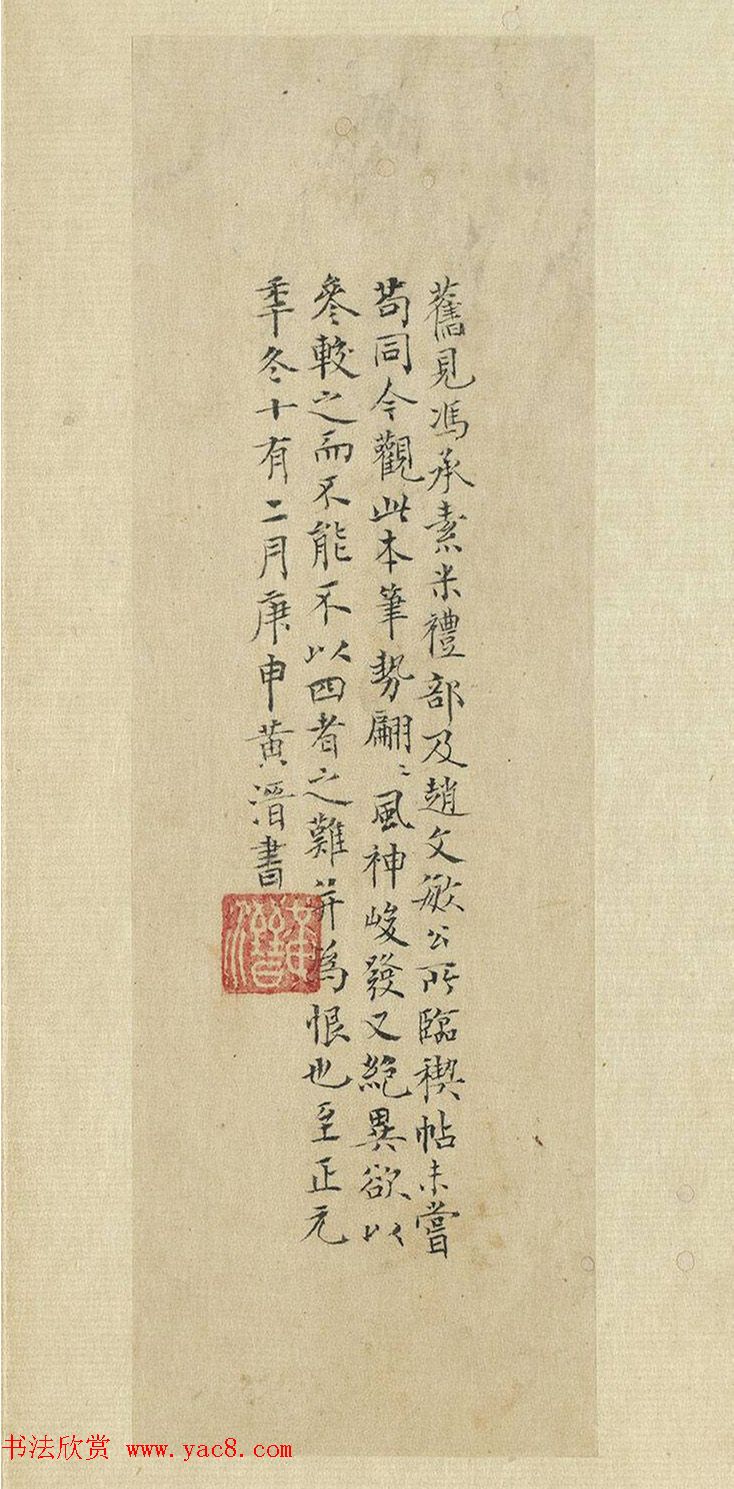 舊見馮承素米禮部及趙文敏公所臨禊帖未嘗
苟同今觀此本筆勢翩〻風神峻發又絕異欲以
參較之而不能不以四者之難并為恨也至正元
季冬十有二月庚申黃溍書
书法欣赏 www.yac8.com